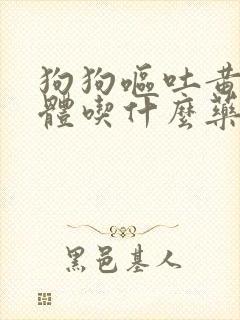 狗狗嘔吐黃
體喫什麼藥
黑邑基人